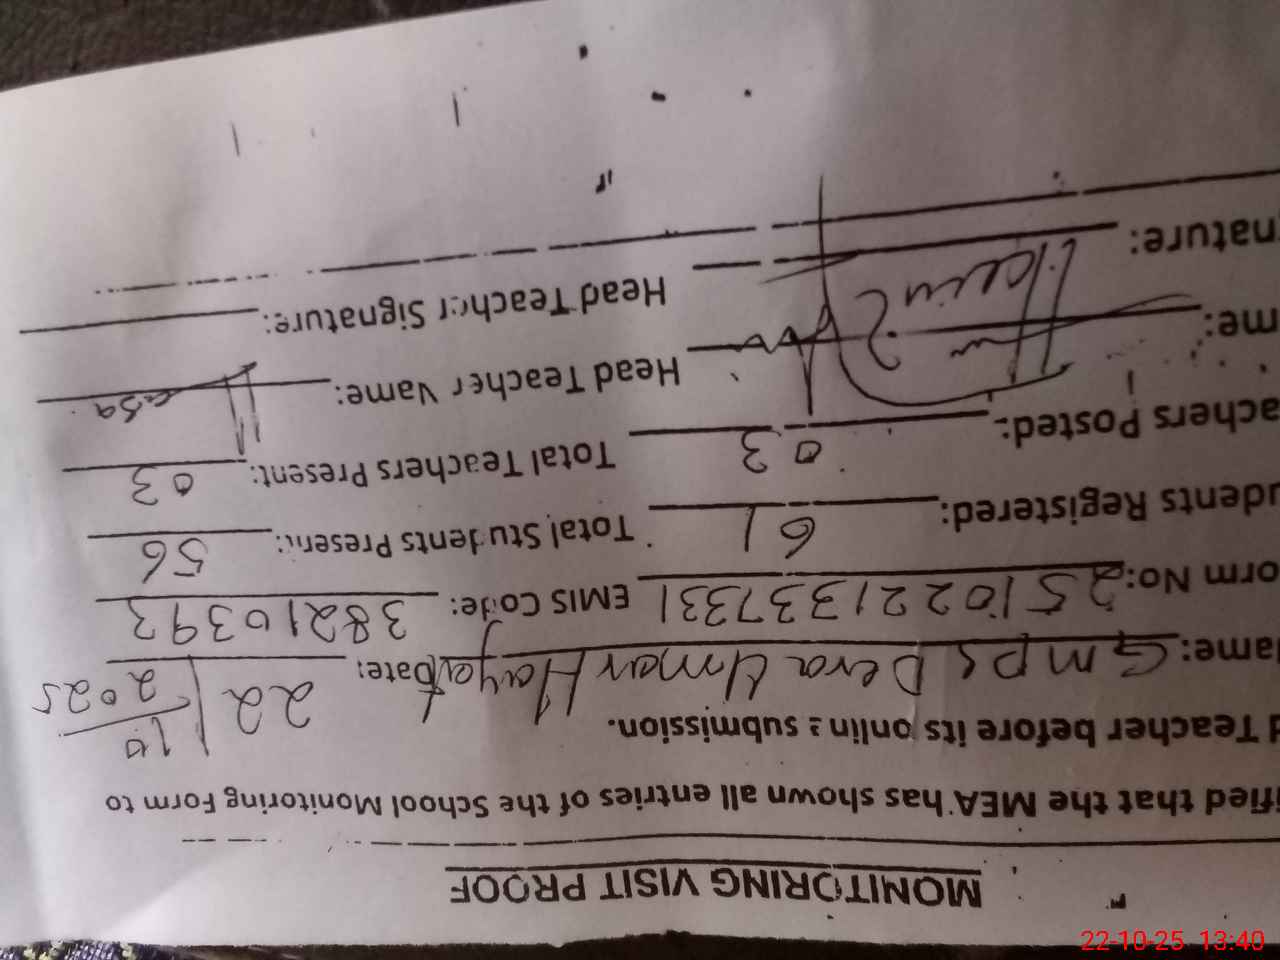 MONITORING VISIT PROOF
ified that the MEA has shown all entries of the School Monitoring Form to
d Teacher before its online submission.
ame: GMPS Dera Umar Hayat Date: 22/10/2025
orm No: 2510221337331 EMIS Code: 38210393
udents Registered: 61 Total Students Present: 56
achers Posted: 03 Total Teachers Present: 03
me: Head Teacher Name:
nature: Head Teacher Signature:
22-10-25 13:40